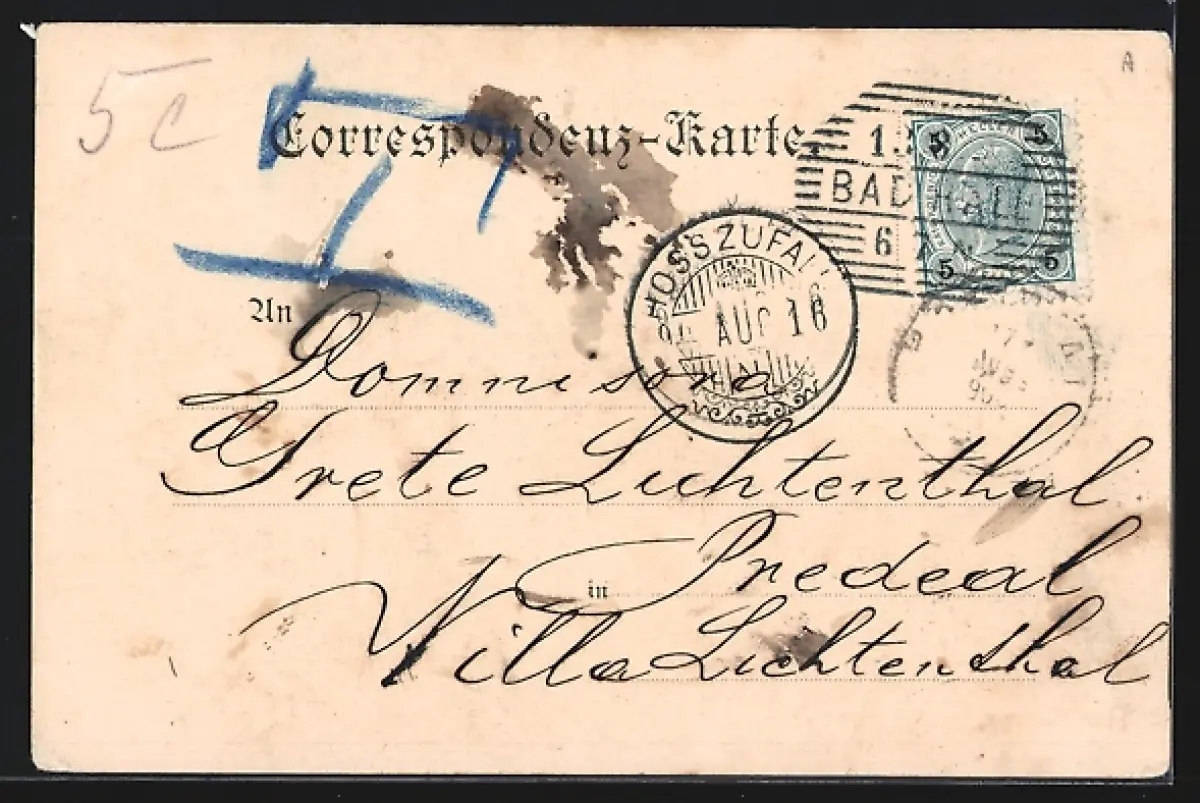 A
5 c
T
Correspondenz-Karte.
5 HELLER 5
5 5
BAD HALL
6
HOSSZUFALU
AUG 16
An
Domnisora
Grete Lichtenthal
in Predeal
Villa Lichtenthal